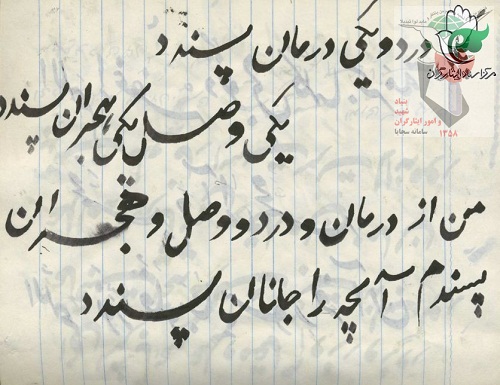 درد و یکی درمان پسندد
یکی وصل یکی هجران پسندد
من از درمان و درد و وصل و هجران
پسندم آنچه را جانان پسندد
مرکز اسناد ایثارگران
بنیاد
شهید
و امور ایثارگران
سامانه سجایا
۱۳۵۸